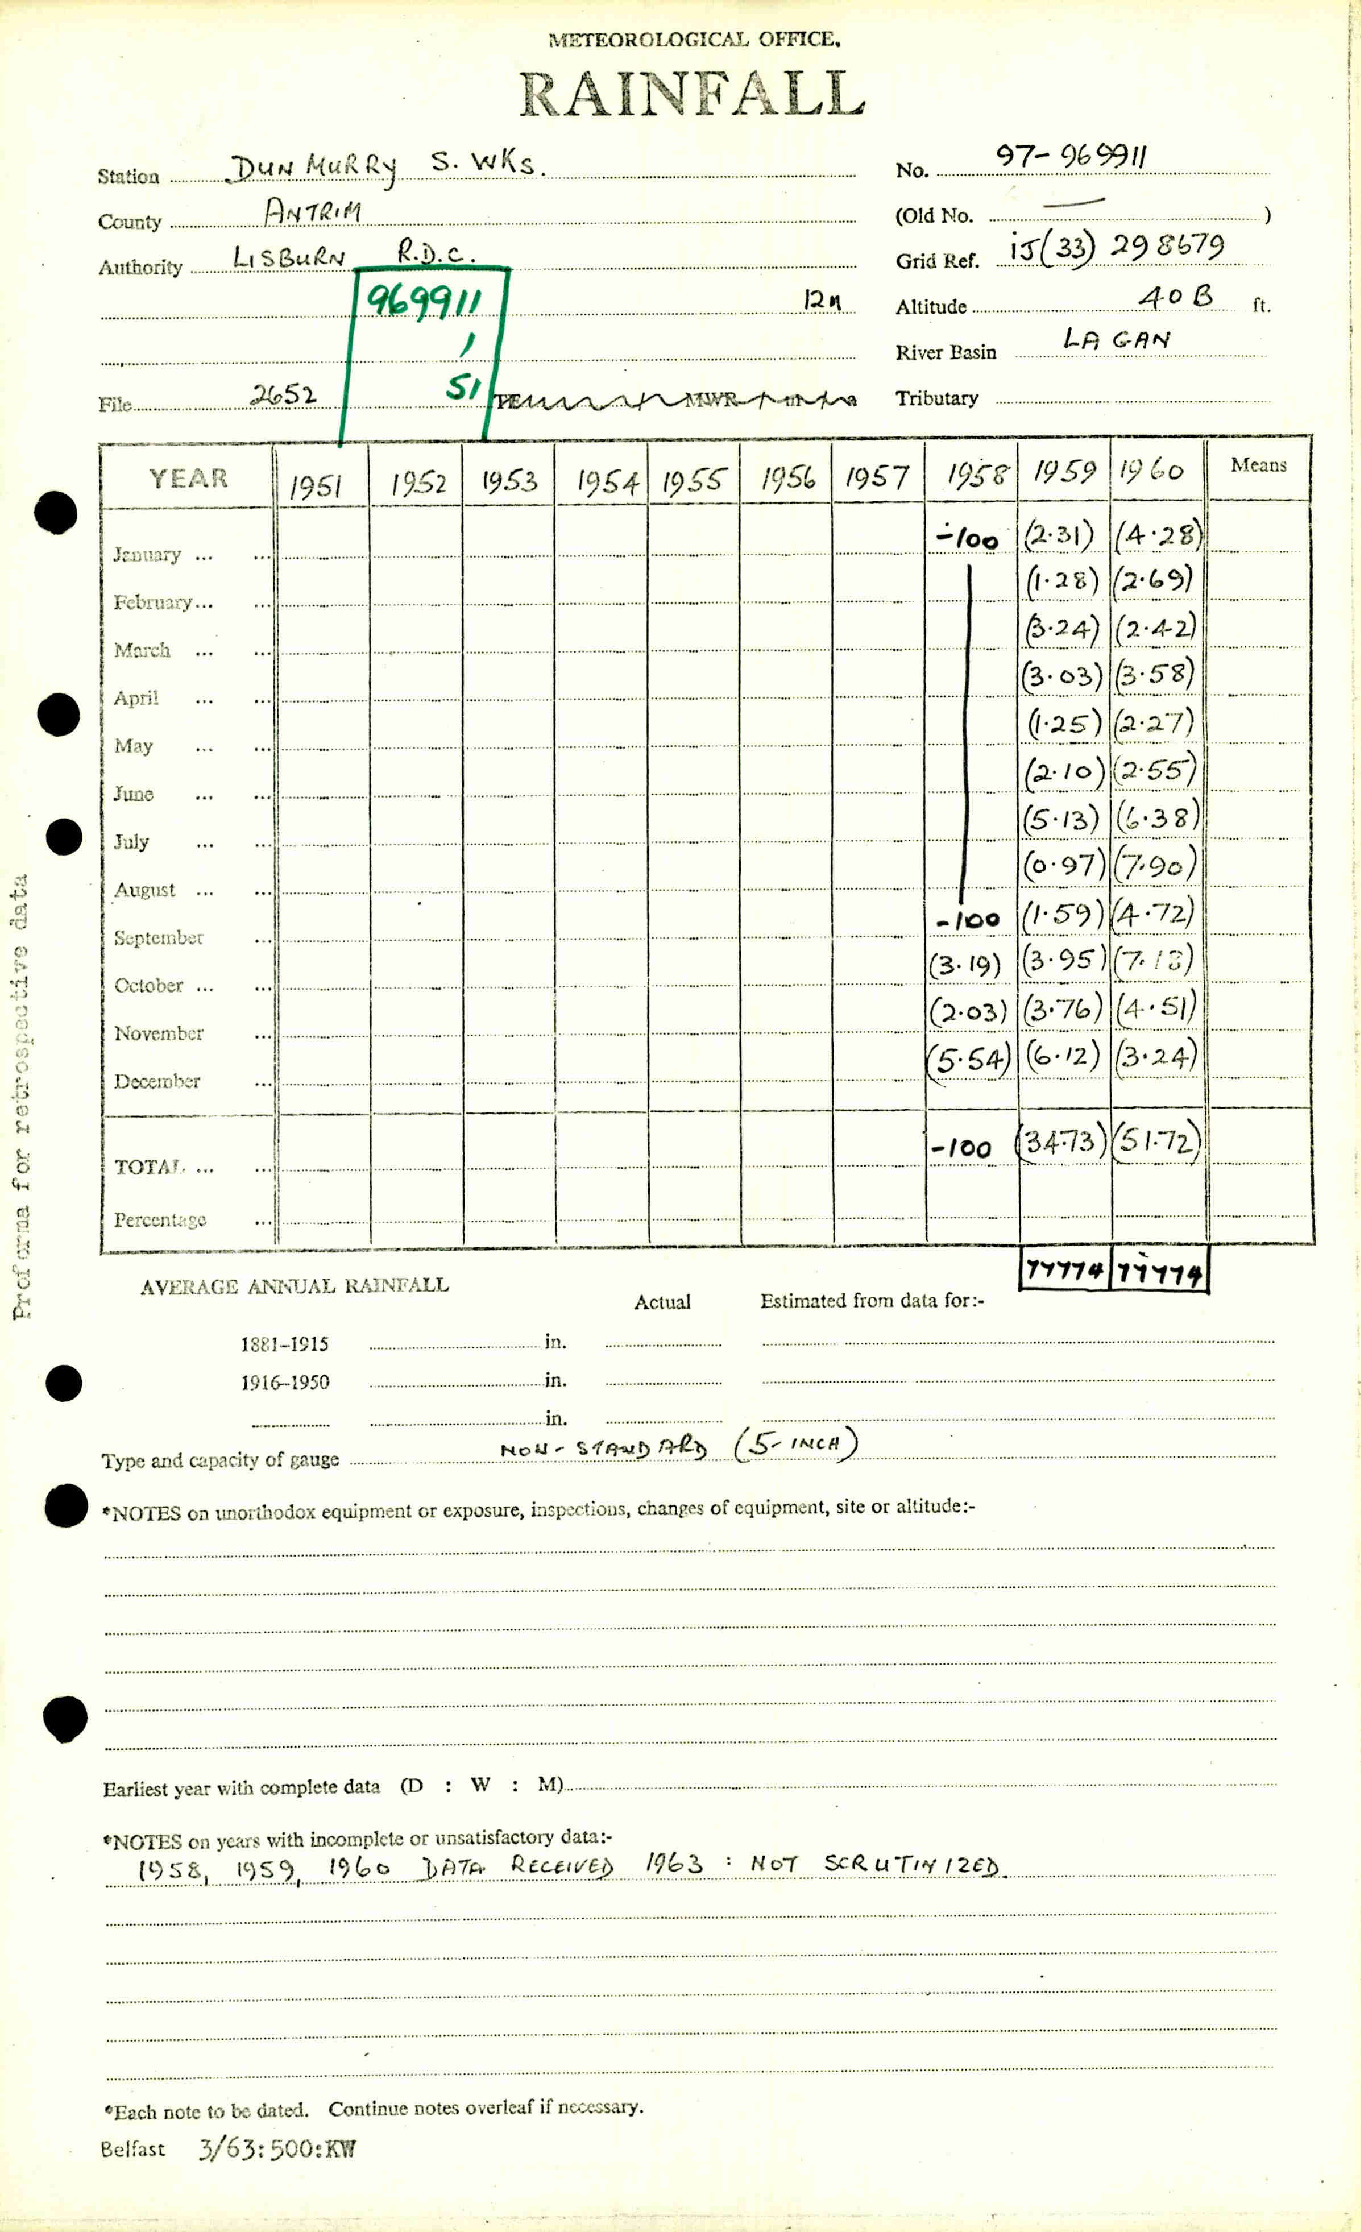 METEOROLOGICAL OFFICE.
RAINFALL
Station DUNMURRY S. WKS. No. 97-969911
County ANTRIM (Old No. — )
Authority LISBURN R.D.C. Grid Ref. iJ(33) 298679
969911 12M Altitude 40 B ft.
1 River Basin LAGAN
File 2652 51 Tributary
YEAR 1951 1952 1953 1954 1955 1956 1957 1958 1959 1960 Means
January ... ... -100 (2.31) (4.28)
February... ... (1.28) (2.69)
March ... ... (3.24) (2.42)
April ... ... (3.03) (3.58)
May ... ... (1.25) (2.27)
June ... ... (2.10) (2.55)
July ... ... (5.13) (6.38)
August ... ... (0.97) (7.90)
September ... -100 (1.59) (4.72)
October ... ... (3.19) (3.95) (7.18)
November ... (2.03) (3.76) (4.51)
December ... (5.54) (6.12) (3.24)
TOTAL ... ... -100 (34.73) (51.72)
Percentage ...
77774 77774
Proforma for retrospective data
AVERAGE ANNUAL RAINFALL
Actual Estimated from data for:-
1881–1915 in.
1916–1950 in.
in.
Type and capacity of gauge NON-STANDARD (5-INCH)
*NOTES on unorthodox equipment or exposure, inspections, changes of equipment, site or altitude:-
Earliest year with complete data (D : W : M)
*NOTES on years with incomplete or unsatisfactory data:-
1958, 1959, 1960 DATA RECEIVED 1963 : NOT SCRUTINIZED.
*Each note to be dated. Continue notes overleaf if necessary.
Belfast 3/63:500:KW